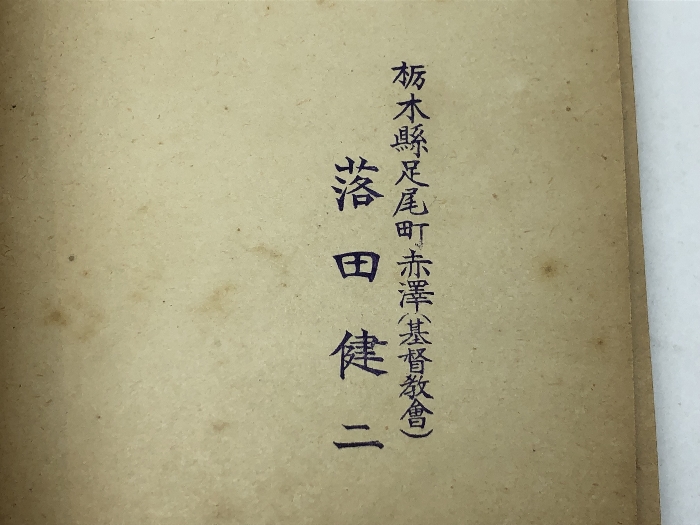 栃木縣足尾町赤澤(基督教會)
落田健二